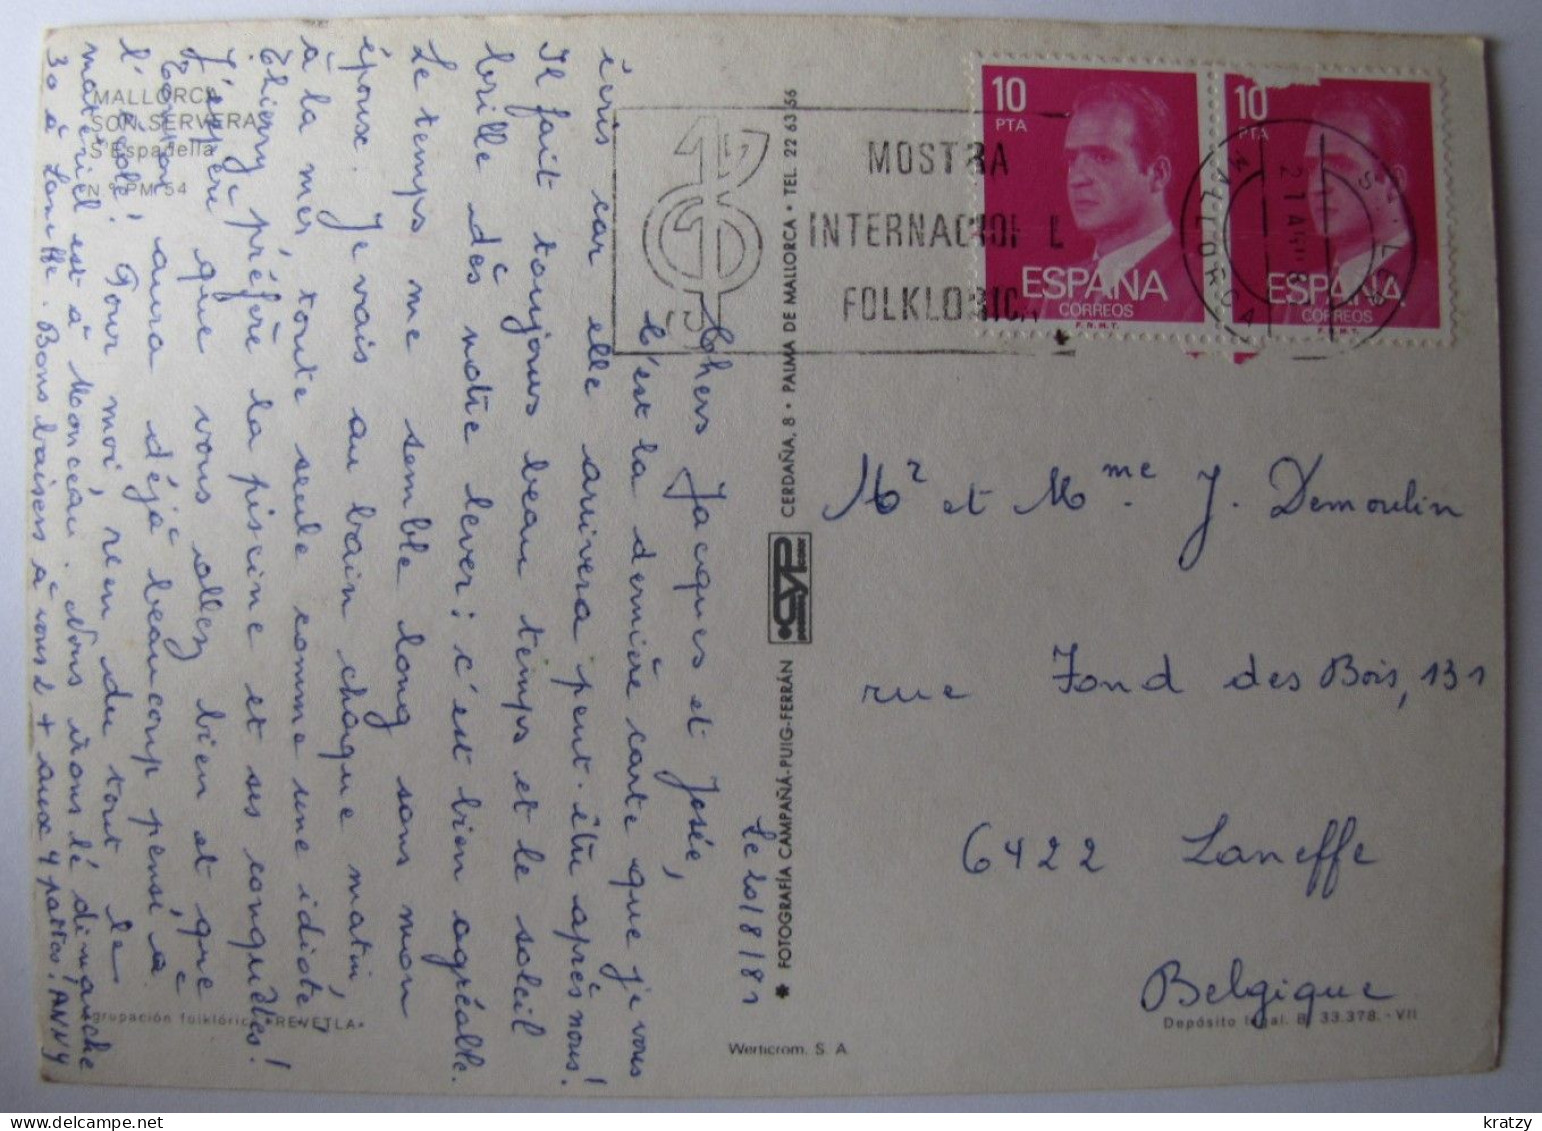 MALLORCA
SON SERVERA
S'Espadella
N.º PM 54
Le 20/8/81
Chers Jacques et Josée,
C'est la dernière carte que je vous
écris car elle arrivera peut-être après nous!
Il fait toujours beau temps et le soleil
brille dès notre lever: c'est bien agréable.
Le temps me semble long sans mon
époux. Je vais au bain chaque matin,
à la mer toute seule comme une idiote!
Thierry préfère la piscine et ses conquêtes!
J'espère que vous allez bien et que
aura déjà beaucoup pensé à
l'école! Pour moi, rien du tout le
matériel est à Monceau. Nous irons le dimanche
30 à Laneffe. Bons baisers à vous 2 + aux 4 pattes! ANNY
Agrupación folklórica «REVETLA»
FOTOGRAFÍA CAMPAÑÁ-PUIG-FERRÁN
CERDAÑA, 8 • PALMA DE MALLORCA • TEL. 22 63 56
Werticrom, S. A.
MOSTRA
INTERNACION L
FOLKLORICA
10
PTA
ESPAÑA
CORREOS
F.N.M.T.
10
PTA
ESPAÑA
CORREOS
F.N.M.T.
MALLORCA
Mr et Mme. J. Demoulin
rue Fond des Bois, 131
6422 Laneffe
Belgique
Depósito legal. B. 33.378.-VII
kratzy